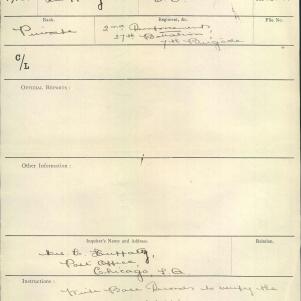 Rank.
Regiment, &c.
File No.
Private
2nd Reinforcements
27th Battalion
7th Brigade
C/L
OFFICIAL REPORTS :
Other Information :
Inquirer's Name and Address.
Relation.
Post Office
Chicago
Instructions :
Write Base Records to verify the